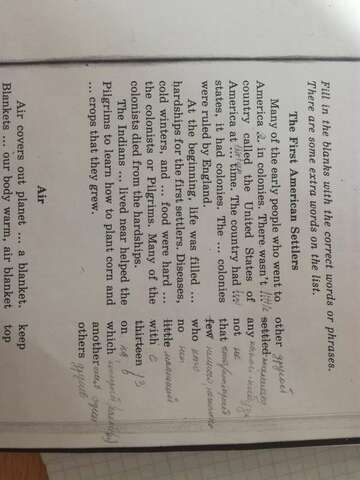 Fill in the blanks with the correct words or phrases.
There are some extra words on the list.
The First American Settlers
Many of the early people who went to
America in colonies. There wasn't
country called the United States of
America at time. The country had
states, it had colonies. The ... colonies
were ruled by England.
At the beginning, life was filled ...
hardships for the first settlers. Diseases,
cold winters, and ... food were hard ...
the colonists or Pilgrims. Many of the
colonists died from the hardships.
The Indians ... lived near helped the
Pilgrims to learn how to plant corn and
... crops that they grew.
other другой
settled
any
not не
that
few
who кто
no нет
little маленький
with с
thirteen 13
on на, в
which
another
others другие
Air
Air covers out planet ... a blanket. keep
Blankets ... our body warm, air blanket top